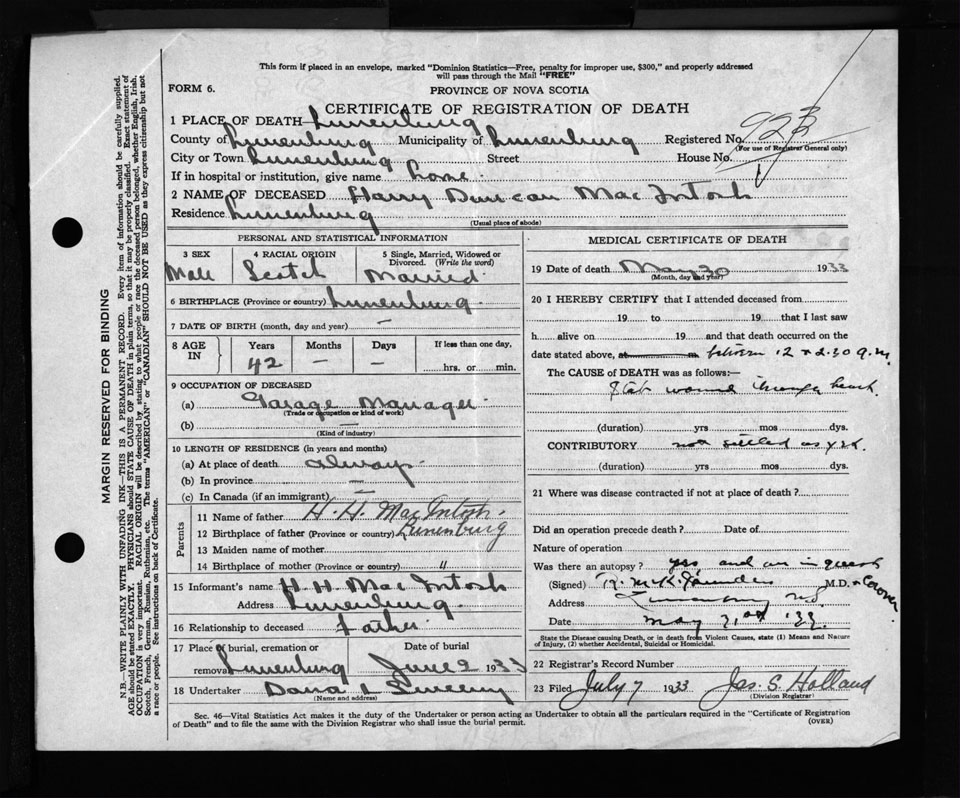 This form if placed in an envelope, marked "Dominion Statistics—Free, penalty for improper use, $300," and properly addressed
will pass through the Mail "FREE"
FORM 6.
PROVINCE OF NOVA SCOTIA
CERTIFICATE OF REGISTRATION OF DEATH
1 PLACE OF DEATH Lunenburg
County of Lunenburg Municipality of Lunenburg Registered No.
(For use of Registrar General only)
City or Town Lunenburg Street House No.
If in hospital or institution, give name home
2 NAME OF DECEASED Harry Duncan MacIntosh
Residence Lunenburg
(Usual place of abode)
PERSONAL AND STATISTICAL INFORMATION
3 SEX 4 RACIAL ORIGIN 5 Single, Married, Widowed or
Divorced. (Write the word)
Male Scotch Married
6 BIRTHPLACE (Province or country) Lunenburg
7 DATE OF BIRTH (month, day and year) —
8 AGE IN Years Months Days If less than one day,
42 — — hrs. or min.
9 OCCUPATION OF DECEASED
(a) Garage Manager
(Trade or occupation or kind of work)
(b) —
(Kind of industry)
10 LENGTH OF RESIDENCE (in years and months)
(a) At place of death always
(b) In province —
(c) In Canada (if an immigrant) —
Parents
11 Name of father H. H. MacIntosh
12 Birthplace of father (Province or country) Lunenburg
13 Maiden name of mother
14 Birthplace of mother (Province or country) "
15 Informant's name H H MacIntosh
Address Lunenburg
16 Relationship to deceased Father
17 Place of burial, cremation or Date of burial
removal Lunenburg June 2 1933
18 Undertaker Dana L Sweeny
(Name and address)
MEDICAL CERTIFICATE OF DEATH
19 Date of death May 30 1933
(Month, day and year)
20 I HEREBY CERTIFY that I attended deceased from
19 to 19 that I last saw
h alive on 19 and that death occurred on
date stated above, at m between 12 & 2.30 a.m.
The CAUSE of DEATH was as follows:
Stab wound through heart
(duration) yrs mos dys.
CONTRIBUTORY not settled as yet
(duration) yrs mos dys.
21 Where was disease contracted if not at place of death?
Did an operation precede death? Date of
Nature of operation
Was there an autopsy? yes and an inquest
(Signed) R. McK. Saunders M.D. & Coroner
Address Lunenburg N.S.
Date May 31st '33.
State the Disease causing Death, or in death from Violent Causes, state (1) Means and Nature
of Injury, (2) whether Accidental, Suicidal or Homicidal.
22 Registrar's Record Number
23 Filed July 7 1933 Jas. S. Holland
(Division Registrar)
Sec. 46—Vital Statistics Act makes it the duty of the Undertaker or person acting as Undertaker to obtain all the particulars required in the "Certificate of Registration
of Death" and to file the same with the Division Registrar who shall issue the burial permit.
(OVER)
MARGIN RESERVED FOR BINDING
N.B.—WRITE PLAINLY WITH UNFADING INK—THIS IS A PERMANENT RECORD. Every item of information should be carefully supplied.
AGE should be stated EXACTLY. PHYSICIANS should STATE CAUSE OF DEATH in plain terms, so that it may be properly classified. Exact statement of
OCCUPATION is very important. RACIAL ORIGIN will be described by stating to what people or race the deceased person belonged, whether English, Irish,
Scotch, French, German, Russian, Ruthenian, etc. The terms "AMERICAN" or "CANADIAN" SHOULD NOT BE USED as they express citizenship but not
a race or people. See instructions on back of Certificate.